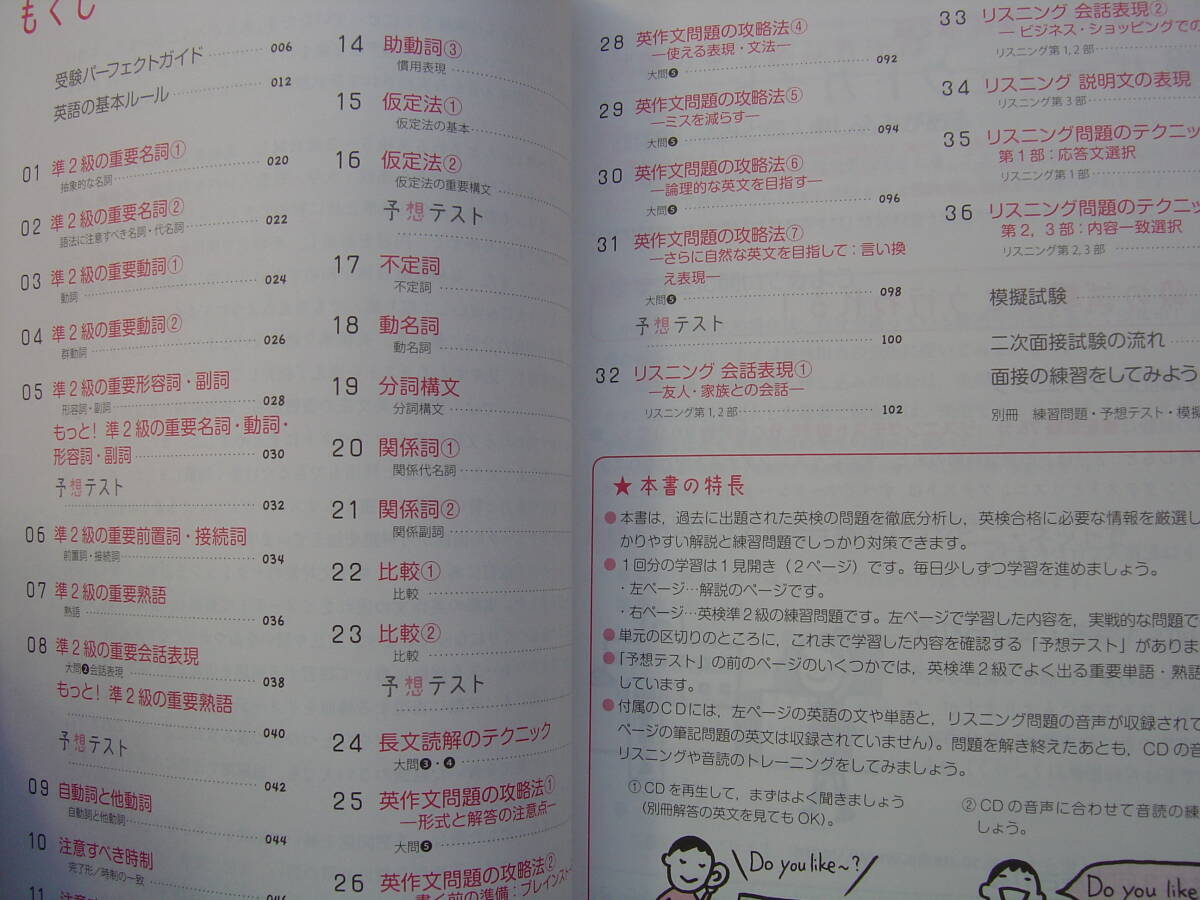 もくじ
受験パーフェクトガイド 006
英語の基本ルール 012
01 準2級の重要名詞① 020
抽象的な名詞
02 準2級の重要名詞② 022
語法に注意すべき名詞・代名詞
03 準2級の重要動詞① 024
動詞
04 準2級の重要動詞② 026
群動詞
05 準2級の重要形容詞・副詞
形容詞・副詞 028
もっと! 準2級の重要名詞・動詞・
形容詞・副詞 030
予想テスト
032
06 準2級の重要前置詞・接続詞
前置詞・接続詞 034
07 準2級の重要熟語
熟語 036
08 準2級の重要会話表現
大問❷会話表現 038
もっと! 準2級の重要熟語
040
予想テスト
042
09 自動詞と他動詞
自動詞と他動詞 044
10 注意すべき時制
完了形/時制の一致
11
14 助動詞③
慣用表現
15 仮定法①
仮定法の基本
16 仮定法②
仮定法の重要構文
予想テスト
17 不定詞
不定詞
18 動名詞
動名詞
19 分詞構文
分詞構文
20 関係詞①
関係代名詞
21 関係詞②
関係副詞
22 比較①
比較
23 比較②
比較
予想テスト
24 長文読解のテクニック
大問❸・❹
25 英作文問題の攻略法①
―形式と解答の注意点―
大問❺
26 英作文問題の攻略法②
28 英作文問題の攻略法④
―使える表現・文法―
大問❺ 092
29 英作文問題の攻略法⑤
―ミスを減らす―
大問❺ 094
30 英作文問題の攻略法⑥
―論理的な英文を目指す―
大問❺ 096
31 英作文問題の攻略法⑦
―さらに自然な英文を目指して:言い換
え表現―
大問❺ 098
予想テスト
100
32 リスニング 会話表現①
―友人・家族との会話―
リスニング第1,2部 102
33 リスニング 会話表現②
―ビジネス・ショッピングでの
リスニング第1,2部
34 リスニング 説明文の表現
リスニング第3部
35 リスニング問題のテクニッ
第1部:応答文選択
リスニング第1部
36 リスニング問題のテクニッ
第2,3部:内容一致選択
リスニング第2,3部
模擬試験
二次面接試験の流れ
面接の練習をしてみよう
別冊 練習問題・予想テスト・模擬
★本書の特長
●本書は,過去に出題された英検の問題を徹底分析し,英検合格に必要な情報を厳選し
かりやすい解説と練習問題でしっかり対策できます。
●1回分の学習は1見開き(2ページ)です。毎日少しずつ学習を進めましょう。
・左ページ…解説のページです。
・右ページ…英検準2級の練習問題です。左ページで学習した内容を,実戦的な問題で
●単元の区切りのところに,これまで学習した内容を確認する「予想テスト」がありま
●「予想テスト」の前のページのいくつかでは,英検準2級でよく出る重要単語・熟語
しています。
●付属のCDには,左ページの英語の文や単語と,リスニング問題の音声が収録されて
ページの筆記問題の英文は収録されていません)。問題を解き終えたあとも,CDの音
リスニングや音読のトレーニングをしてみましょう。
①CDを再生して,まずはよく聞きましょう
(別冊解答の英文を見てもOK)。
②CDの音声に合わせて音読の練
しょう。
Do you like~?
Do you like